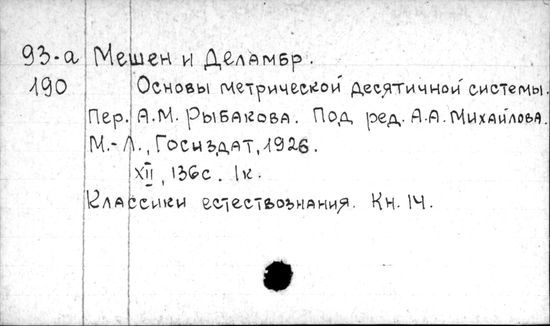 93-а Мешен и Деламбр.
190 Основы метрической десятичной системы.
Пер. А.М. Рыбакова. Под ред. А.А. Михайлова.
М.-Л., Госиздат, 1926.
XII, 136с. 1к.
Классики естествознания. Кн. 14.